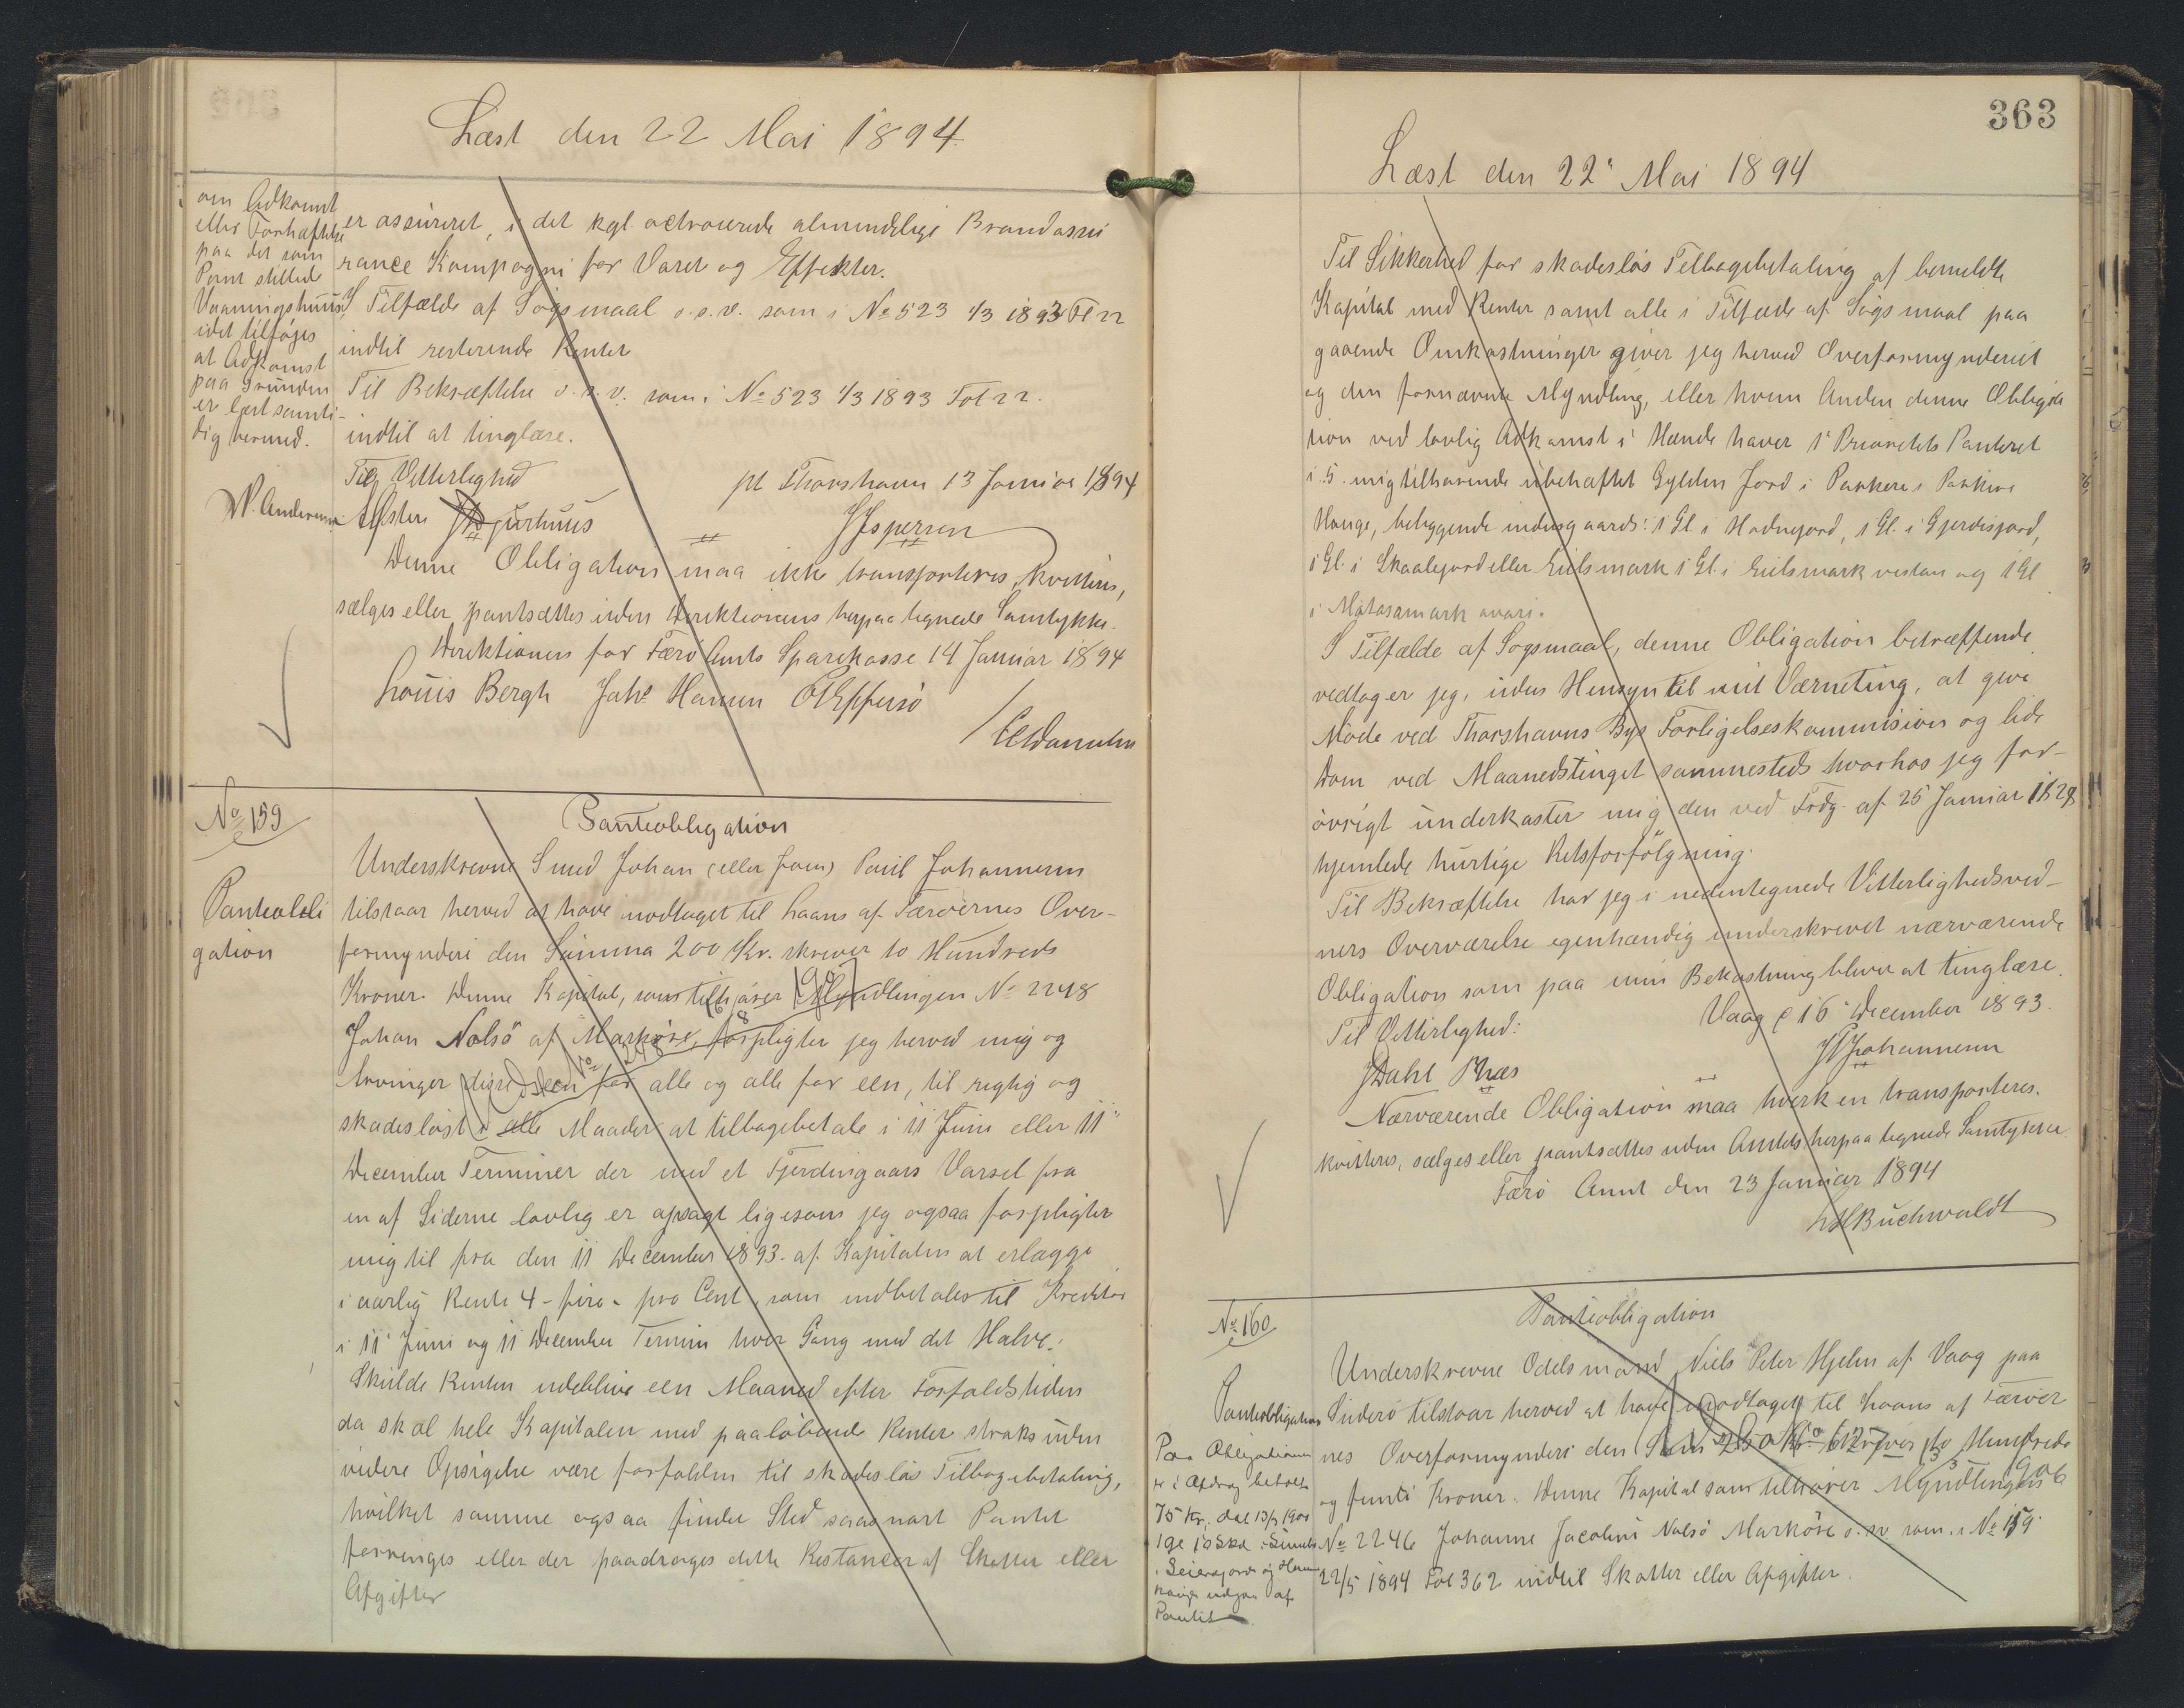 Læst den 22 Mai 1894.
om Adkomst
eller Forhæftelse
paa det som
Pant stillede
Vaaningshuus,
idet tilföjes
at Adkomst
paa Grunden
er læst samti-
dig hermed.
er assureret, i det kgl. octroierede almindelige Brandassu
rance Kompagni for Varer og Effekter.
I Tilfælde af Sögsmaal o.s.v. som i No 523 1/3 1893 Fol 22
indtil resterende Renter
Til Bekræftelse o.s.v. som i No 523 1/3 1893 Fol 22.
indtil at tinglæse.
Til Vitterlighed pt Thorshavn 13 Januar 1894
W. Andersen Djurhuus J Jspersen
Denne Obligation maa ikke transporteres, kvitteres,
sælges eller pantsættes uden Direktionens herpaa tegnede Samtykke.
Direktionen for Færö Amts Sparekasse 14 Januar 1894
Louis Bergh Johs Hansen
No 159
Panteobli
gation
Panteobligation
Underskrevne Smed Johan (eller Joen) Poul Johannesen
tilstaar herved at have modtaget til Laans af Færöernes Over-
formynderi den Summa 200 Kr. skriver to Hundrede
Kroner. Denne Kapital, som tilhörer Myndlingen No 2248
Johan Nolsö af Marköre, forpligter jeg herved mig og
Arvinger een for alle og alle for een, til rigtig og
skadeslöst i alle Maader at tilbagebetale i 11 Juni eller 11"
December Terminer der med et Fjerdingaars Varsel fra
en af Siderne lovlig er opsagt ligesom jeg ogsaa forpligter
mig til fra den 11 December 1893. af Kapitalen at erlægge
i aarlig Rente 4 - fire - pro Cent, som indbetales til Kreditor
i 11' Juni og 11 December Termin hver Gang med det Halve.
Skulde Renten udeblive een Maaned efter Forfaldstiden
da skal hele Kapitalen med paalöbende Renter straks uden
videre Opsigelse være forfalden til skadeslös Tilbagebetaling,
hvilket samme ogsaa finder Sted saasnart Pantet
forringes eller der paadrages dette Restancer af Skatter eller
Afgifter
363
Læst den 22' Mai 1894
Til Sikkerhed for skadeslös Tilbagebetaling af bemeldte
Kapital med Renter samt alle i Tilfælde af Sögsmaal paa
gaaende Omkostninger giver jeg herved Overformynderiet
og den fornævnte Myndling, eller hvem Anden denne Obliga
tion ved lovlig Adkomst i Hænde haver 1' Prioritets Panteret
i 5. mig tilhörende ubehæftet Gylden Jord i Porkere i Porkere
Hauge, beliggende indengaards: 1 Gl i Hodnegjord, 1 Gl. i Gjerdisjord,
1 Gl. i Skaalegjord eller Eidsmark 1 Gl. i Eidsmark vestan og 1 Gl
i Matarsmark avari.
I Tilfælde af Sögsmaal, denne Obligation betræffende
vedtager jeg, uden Hensyn til mit Værneting, at give
Möde ved Thorshavns Bys Forligelseskommision og lide
Dom ved Maanedstinget sammesteds hvorhos jeg for-
övrigt underkaster mig den ved Frdg. af 25 Januar 1828
hjemlede hurtige Retsforfölgning.
Til Bekræftelse har jeg i nedentegnede Vitterlighedsvid-
ners Overværelse egenhændig underskrevet nærværende
Obligation som paa min Bekostning bliver at tinglæse.
Vaag d 16' December 1893.
Til Vitterlighed: JPJohannesen
JDahl
Nærværende Obligation maa hverken transporteres,
kvitteres, sælges eller pantsættes uden Amtets herpaa tegnede Samtykke
Færö Amt den 23 Januar 1894
Buchwaldt
No 160
Panteobligation
Panteobligation
Underskrevne Odelsmand Niels Peter Hjelm af Vaag paa
Suderö tilstaar herved at have modtaget til Laans af Færöer
nes Overformynderi den Sum 250 Kr skriver to Hundrede
og femti Kroner. Denne Kapital som tilhörer Myndlingen
No 2246 Johanne Jacobine Nolsö Marköre o.s.v. som i No 159
22/5 1894 Fol 362 indtil Skatter eller Afgifter.
Paa Obligationen
er i Afdrag betalt
75 Kr.
udgaar af
Pantet